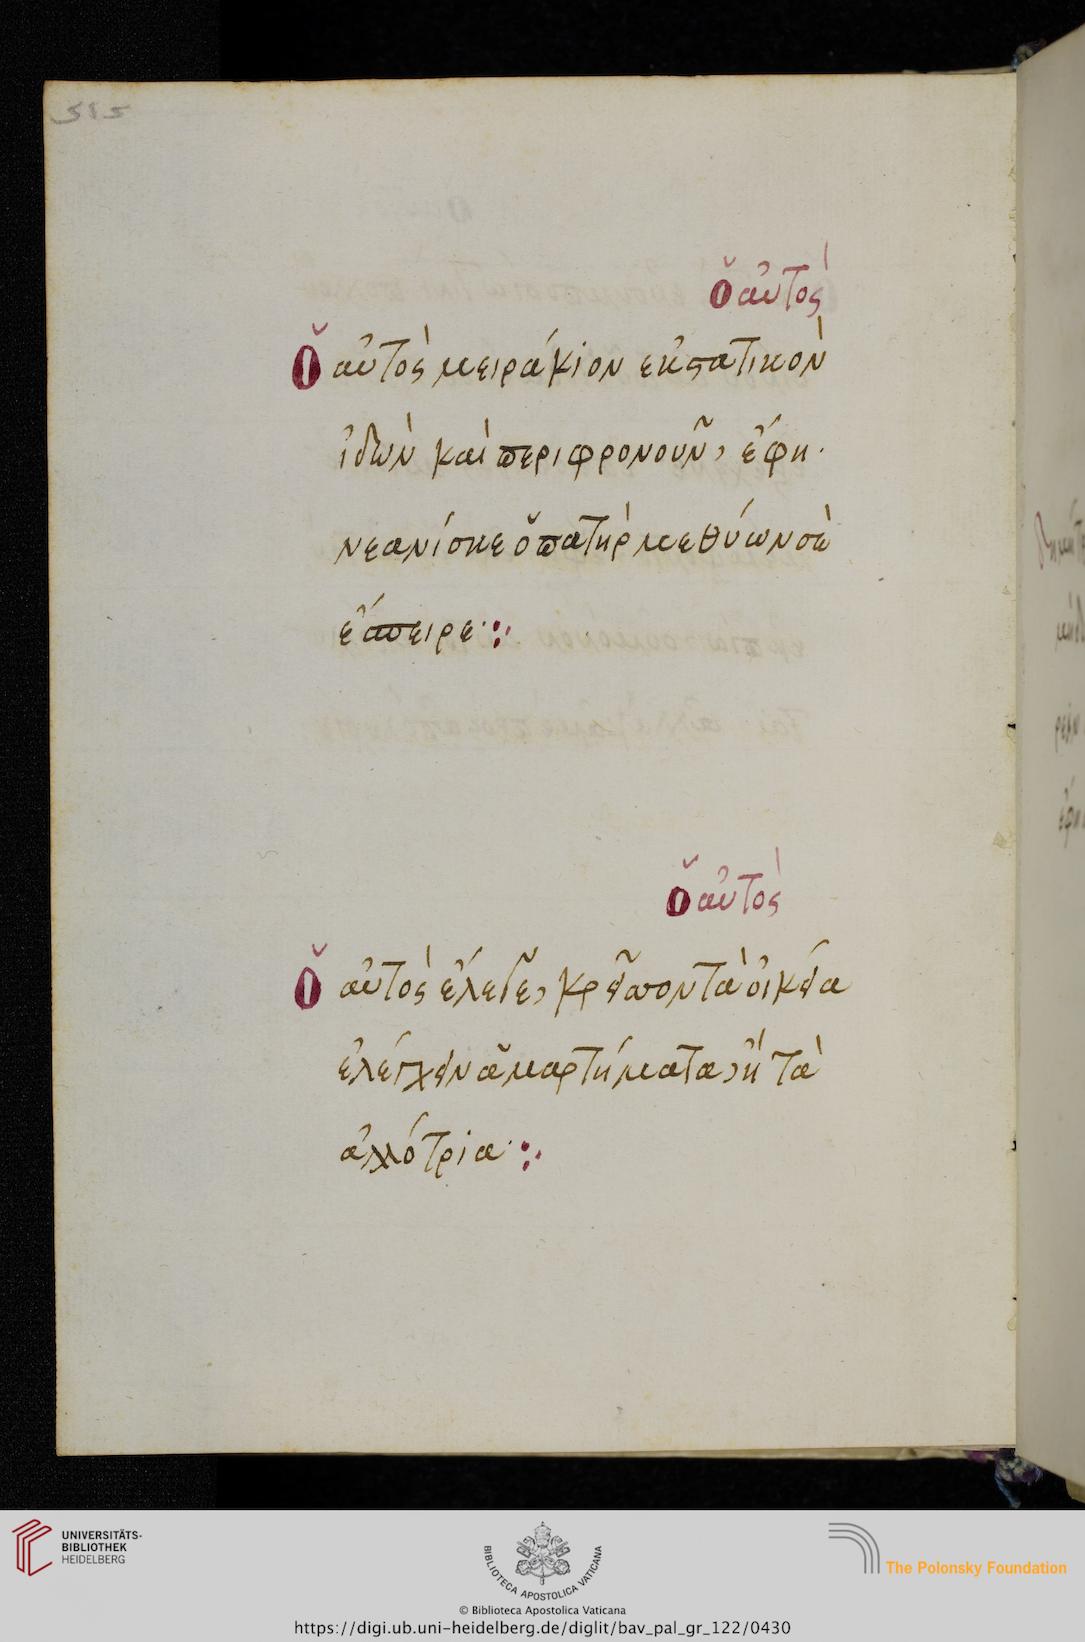 515
ὁ αὐτὸς
Ὁ αὐτὸς μειράκιον εκϛατικὸν
ἰδὼν καὶ περιφρονοῦν, ἔφη·
νεανίσκε ὁ πατὴρ μεθύων σὲ
ἔσπειρε·:·
ὁ αὐτὸς
Ὁ αὐτὸς ἔλεγε, κρεῖττον τὰ οἰκεῖα
ἐλέγχειν ἁμαρτήματα, ἢ τὰ
ἀλλότρια·:·
UNIVERSITÄTS-
BIBLIOTHEK
HEIDELBERG
BIBLIOTECA APOSTOLICA VATICANA
The Polonsky Foundation
© Biblioteca Apostolica Vaticana
https://digi.ub.uni-heidelberg.de/diglit/bav_pal_gr_122/0430